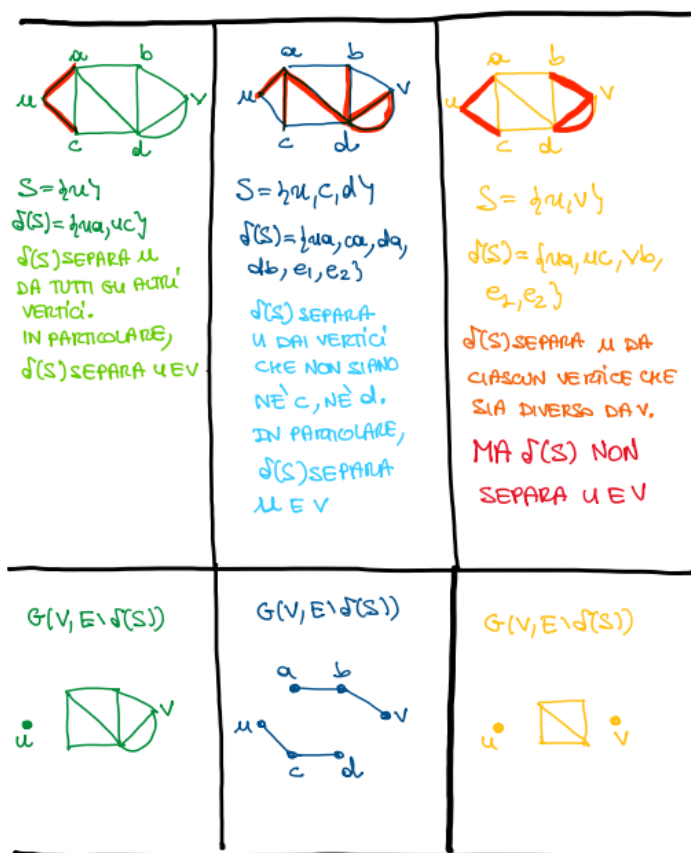 a b
u v
c d
S = {u}
δ(S) = {ua, uc}
δ(S) SEPARA u
DA TUTTI GLI ALTRI
VERTICI.
IN PARTICOLARE,
δ(S) SEPARA u E V
a b
u v
c d
S = {u, c, d}
δ(S) = {ua, ca, da,
db, e₁, e₂}
δ(S) SEPARA
U DAI VERTICI
CHE NON SIANO
NE' C, NE' d.
IN PARTICOLARE,
δ(S) SEPARA
u E V
a b
u v
c d
S = {u, v}
δ(S) = {ua, uc, vb,
e₁, e₂}
δ(S) SEPARA u DA
CIASCUN VERTICE CHE
SIA DIVERSO DA V.
MA δ(S) NON
SEPARA u E V
G(V, E\δ(S))
u v
G(V, E\δ(S))
a b
u v
c d
G(V, E\δ(S))
u v